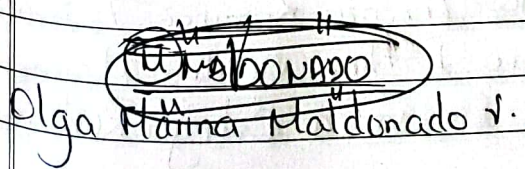 MALDONADO
Olga Marina Maldonado V.